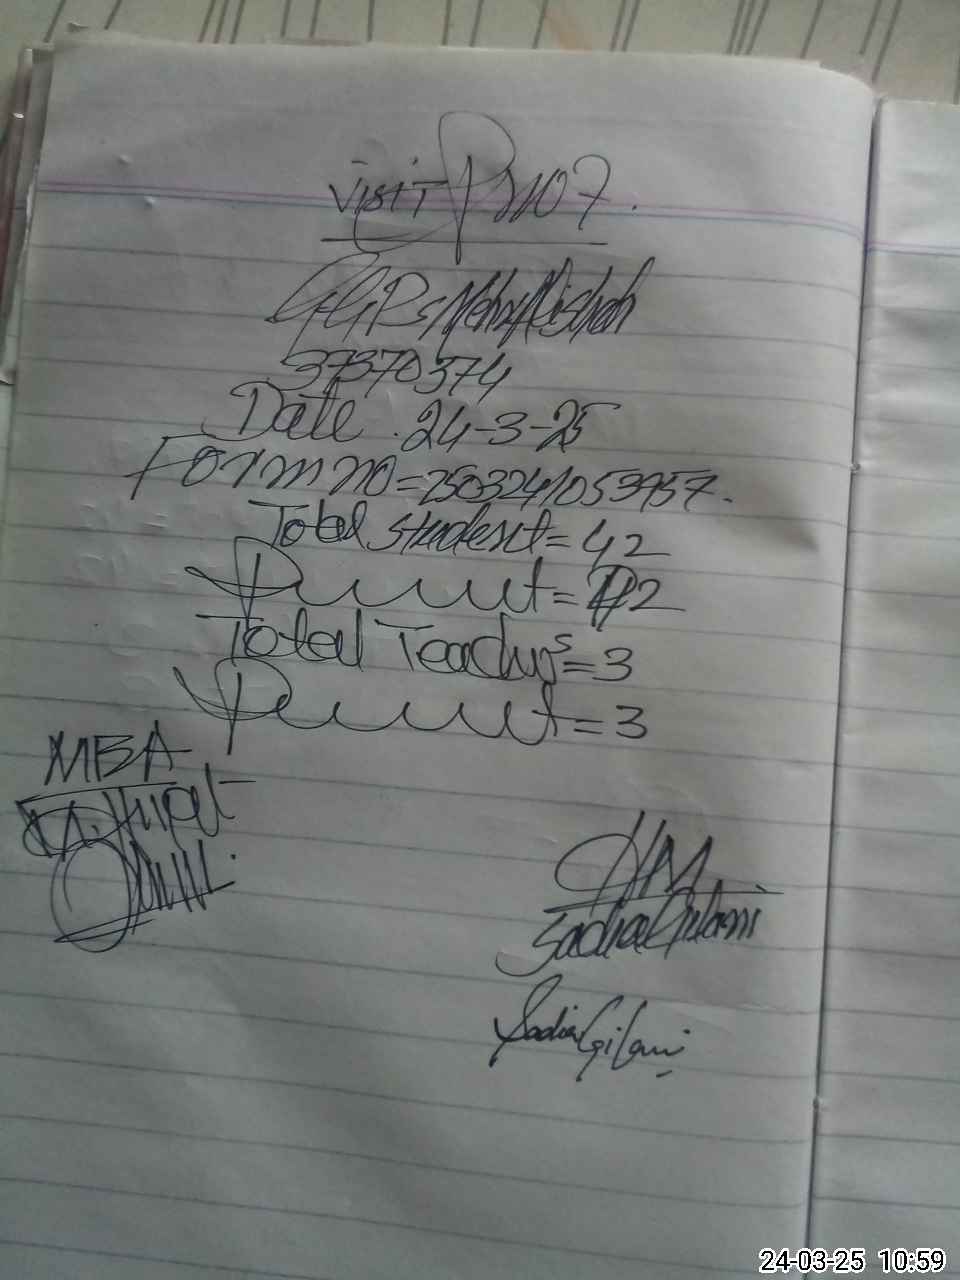 Visit
GGPS Mehra Mishah
37370374
Date. 24-3-25
Form no=2503241053957.
Total Student=42
Present=12
Total Teachers=3
Present=3
MBA
HM
Sadia Gilani
Sadia Gilani
24-03-25 10:59